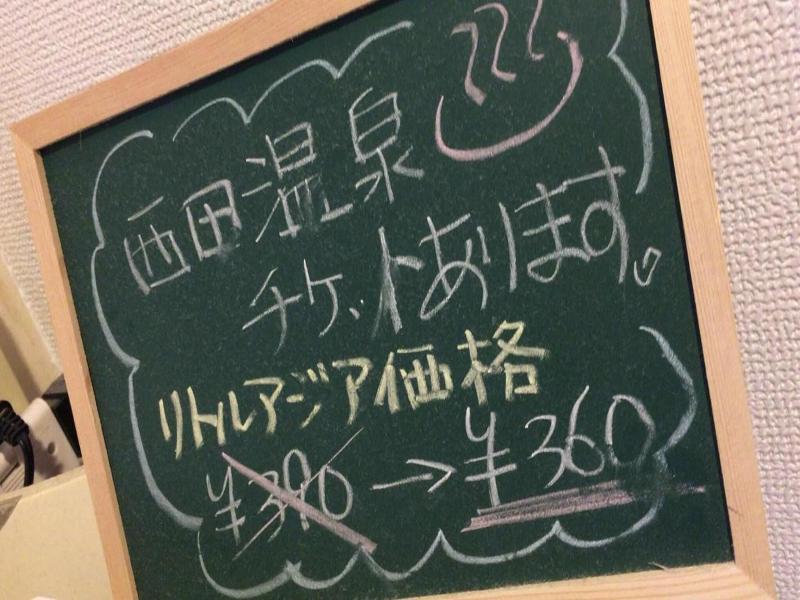 西田温泉
チケットあります
リトルアジア価格
¥390→¥360